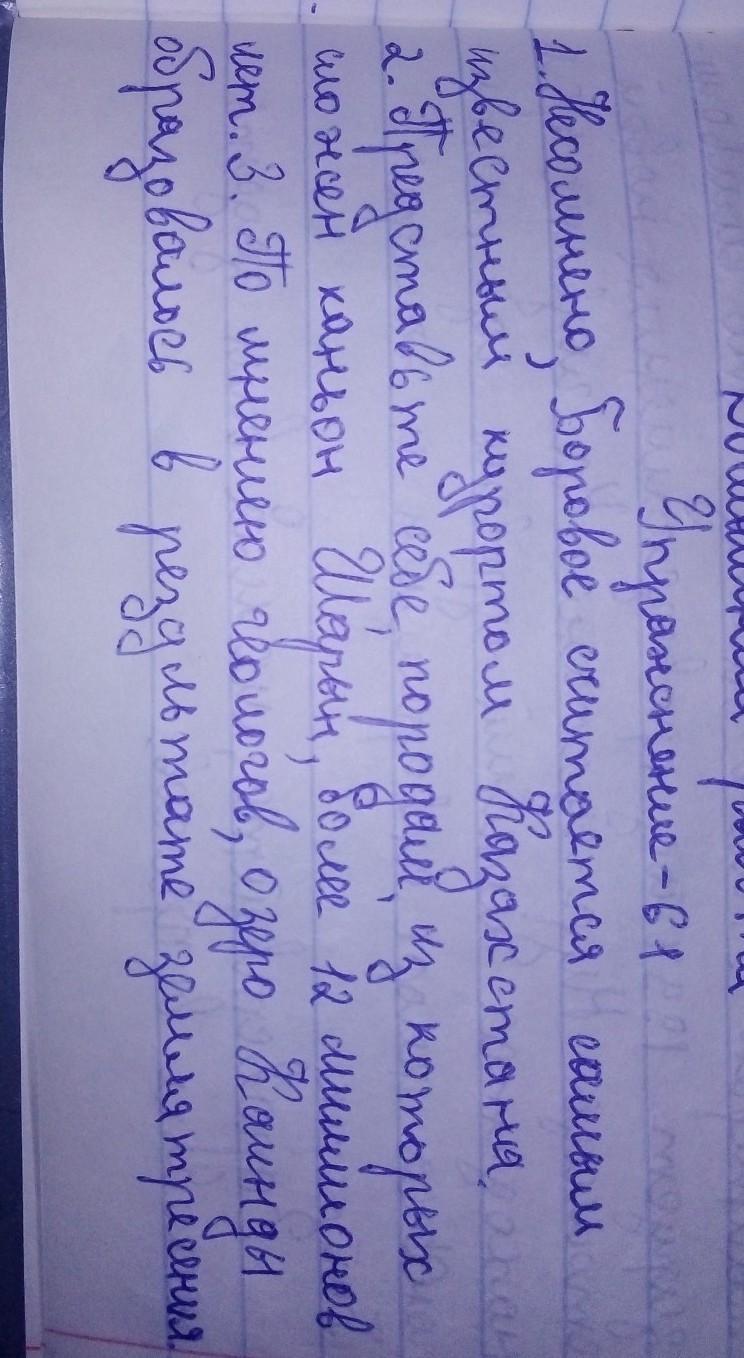 Упражнение-61
1. Несомнено, Боровое считается самым
известным курортом Казахстана.
2. Представьте себе, породам, из которых
сложен каньон Шарын, более 12 миллионов
лет. 3. По мнению геологов, озеро Каинды
образовалось в результате землятресения.